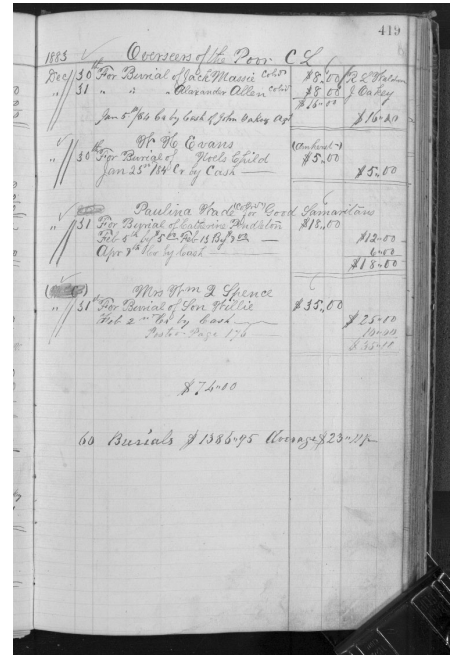 419
1883 Overseers of the Poor C L
Dec 30th For Burial of Jack Massie Col'd $8.00
" 31 " " " Alexander Allen Col'd $8.00 J Oakey
$16.00
Jan 5th /84 Cr by Cash of John Oakey Agt $16.00
W H Evans (Amherst)
" 30th For Burial of Child $5.00
Jan 25th 1884 Cr by Cash $5.00
Paulina Wade (Col'd) for Good Samaritans
" 31 For Burial of Catherine Pendleton $18.00
Feb 5th by 5.00 Feb 15 By 7.00 $12.00
Apr 7th Cr by Cash 6.00
$18.00
Mrs Wm D Spence
" 31st For Burial of Son Willie $35.00
Feb 2nd Cr by Cash $25.00
Posted Page 176 10.00
$35.00
$74.00
60 Burials $1386.95 Average $23